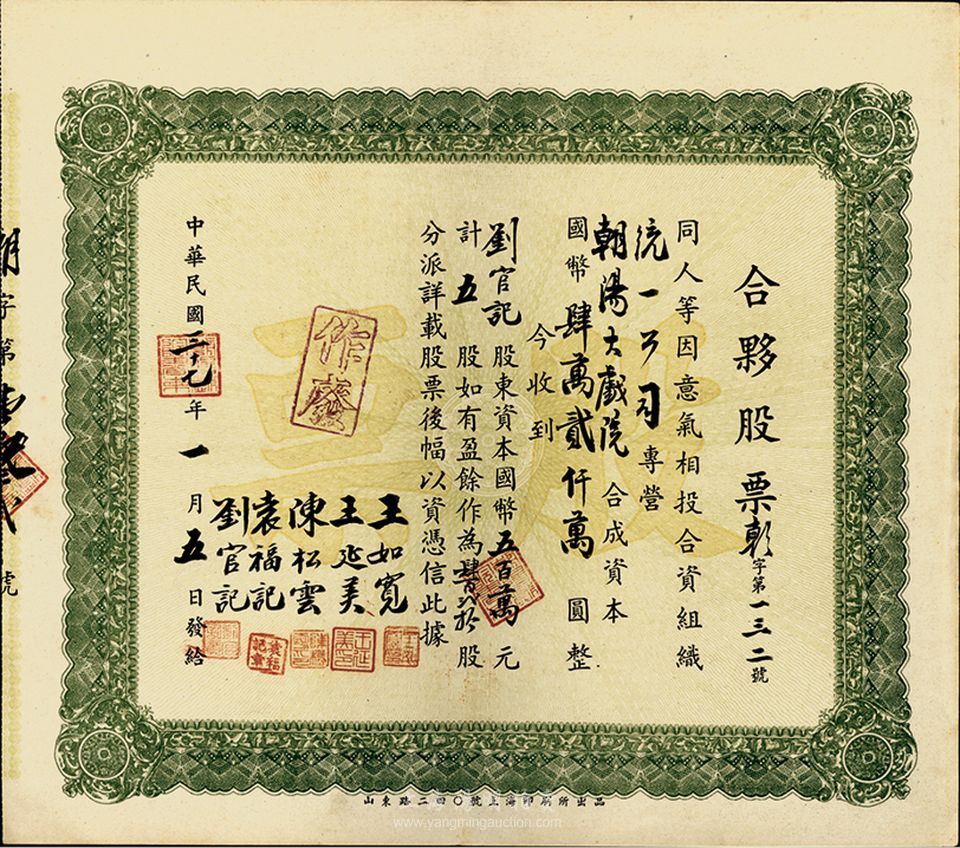 合夥股票 朝字第一三二號
同人等因意氣相投合資組織
統一公司專營
朝陽大戲院合成資本
國幣肆萬貳仟萬圓整
今收到
劉官記股東資本國幣五百萬元
計五股如有盈餘作為肆百貳拾股
分派詳載股票後幅以資憑信此據
作廢
王如寬
王延美
陳松雲
袁福記
劉官記
中華民國三十七年一月五日發給
朝字第壹叁貳號
山東路二四〇號上海印刷所出品
www.yangmingauction.com